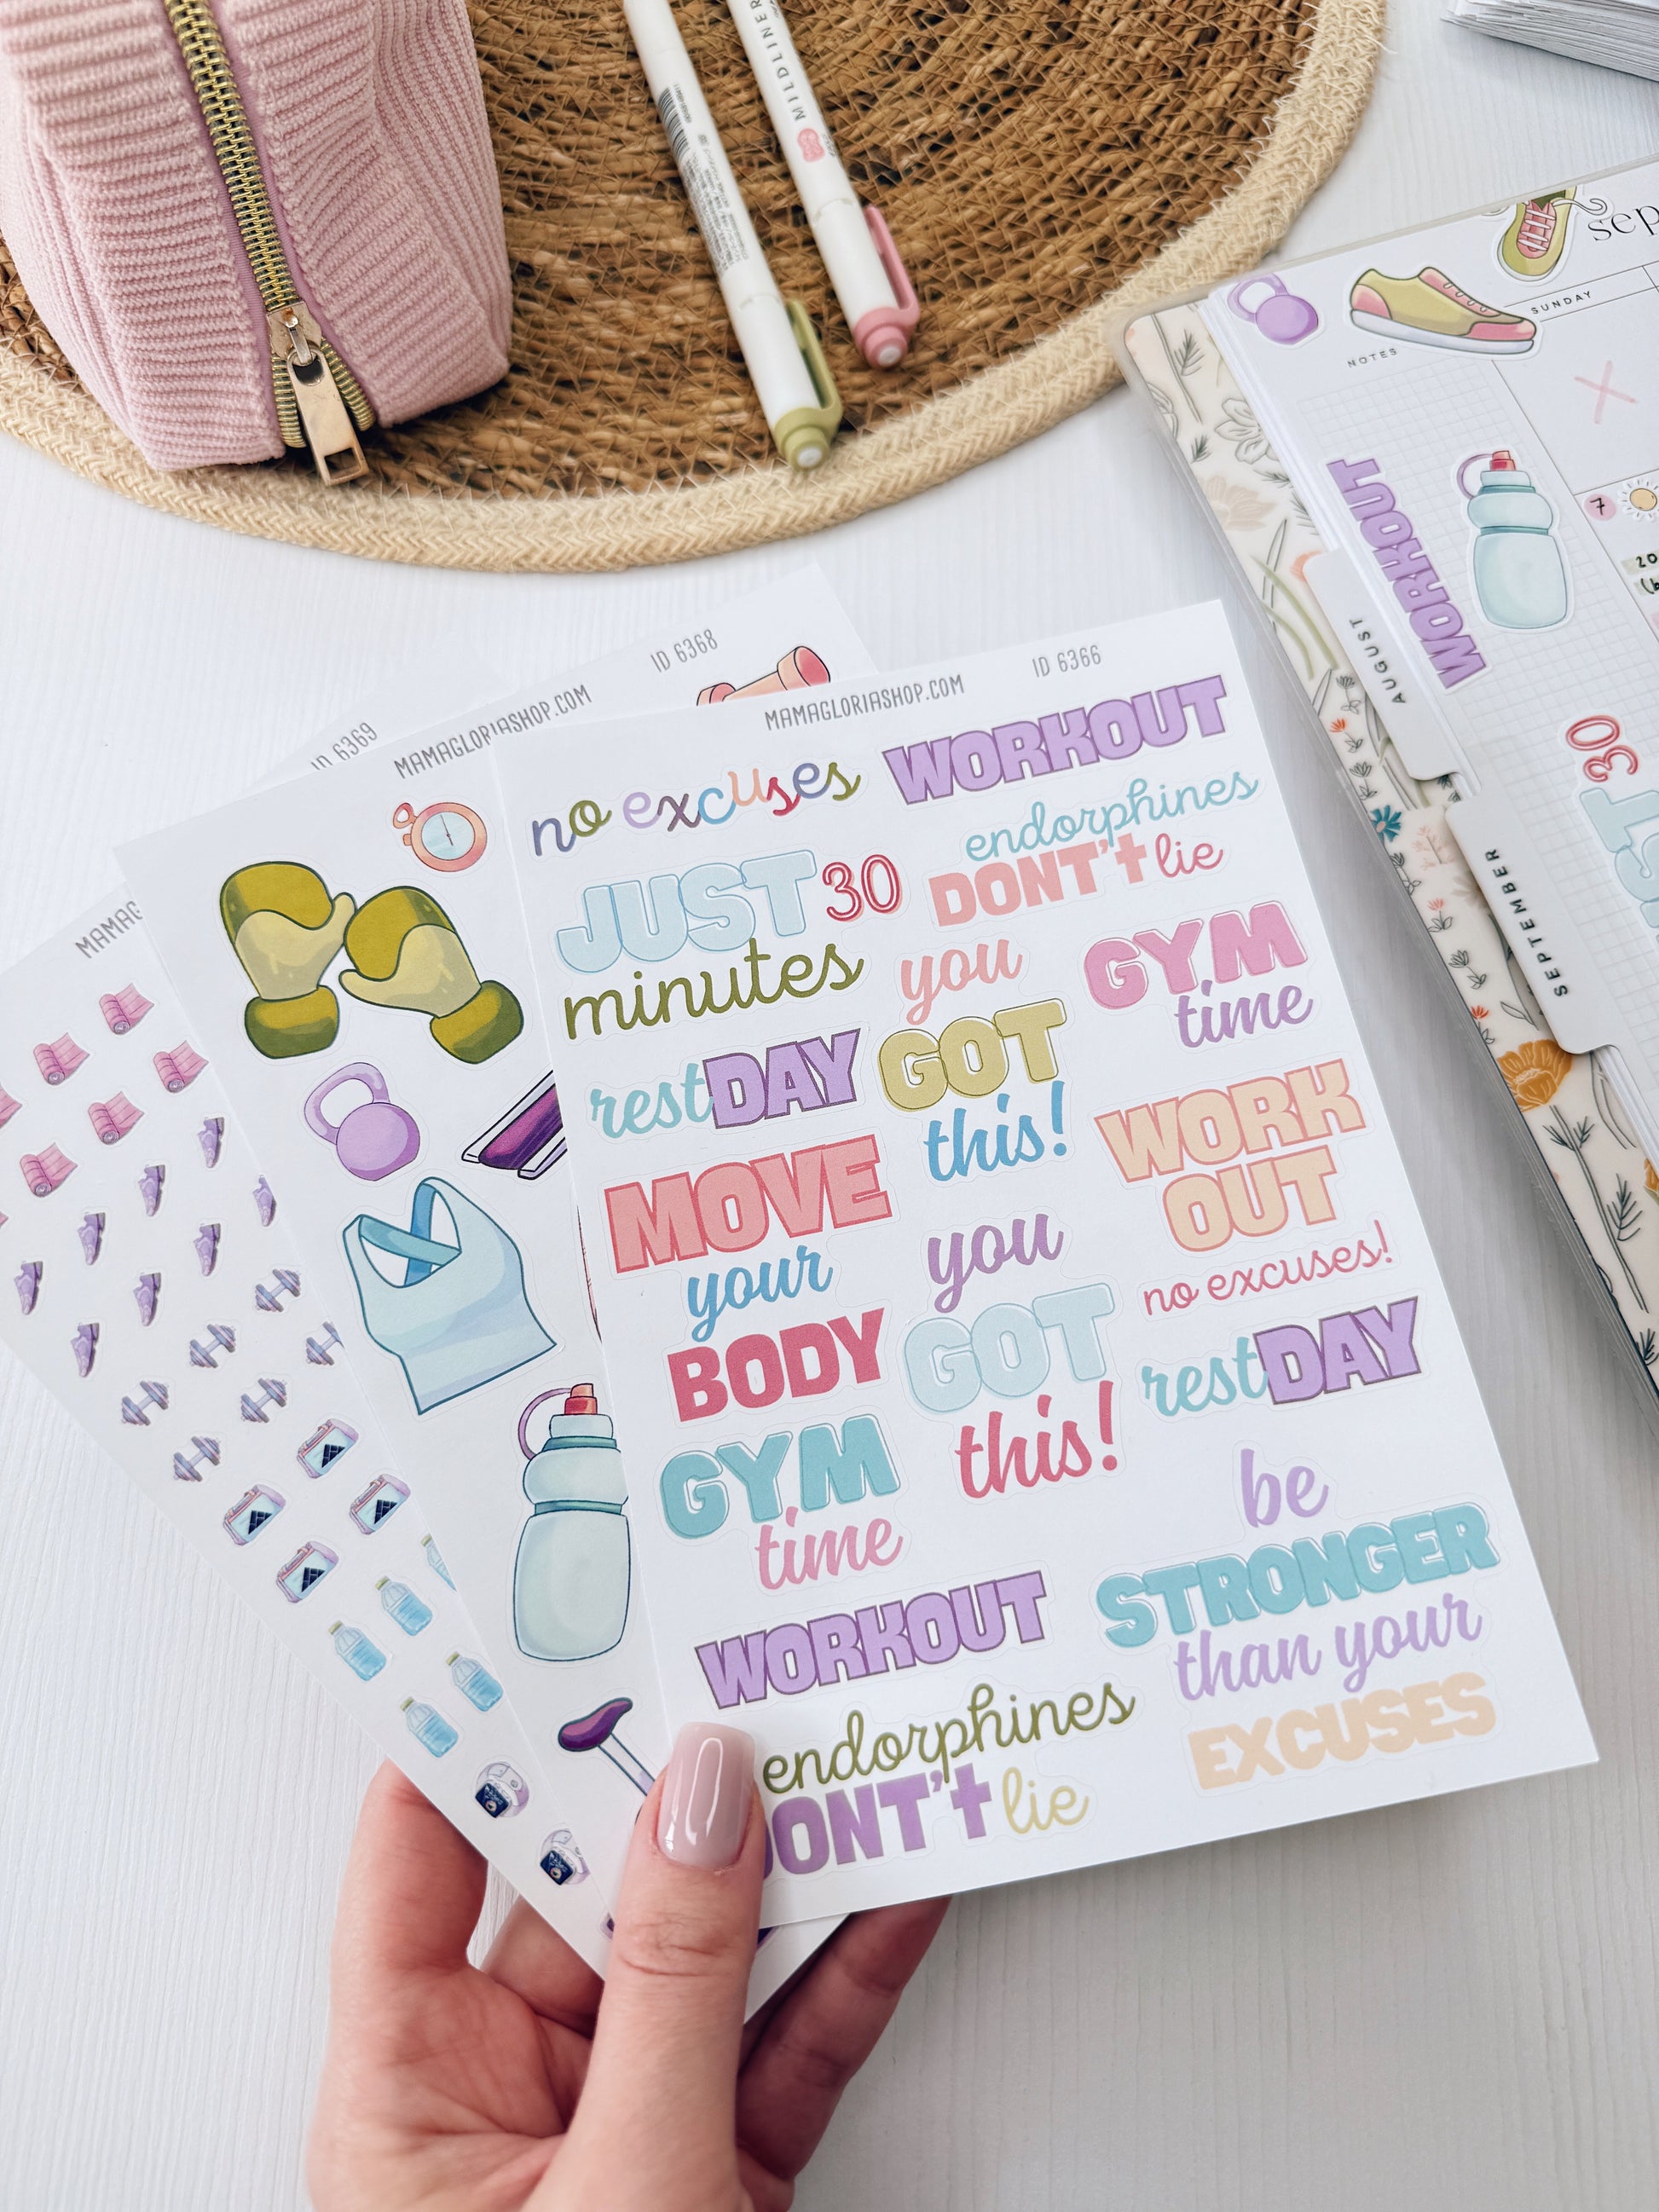 MILDLINER
sep
SUNDAY
NOTES
7
20
WORKOUT
AUGUST
30
SEPTEMBER
ID 6369
MAMAG
ID 6368
MAMAGLORIASHOP.COM
ID 6366
MAMAGLORIASHOP.COM
no excuses
WORKOUT
JUST 30
minutes
endorphines
DON'T lie
you
GOT
this!
GYM
time
restDAY
WORK
OUT
no excuses!
MOVE
your
BODY
you
GOT
this!
restDAY
GYM
time
be
STRONGER
than your
EXCUSES
WORKOUT
endorphines
DON'T lie